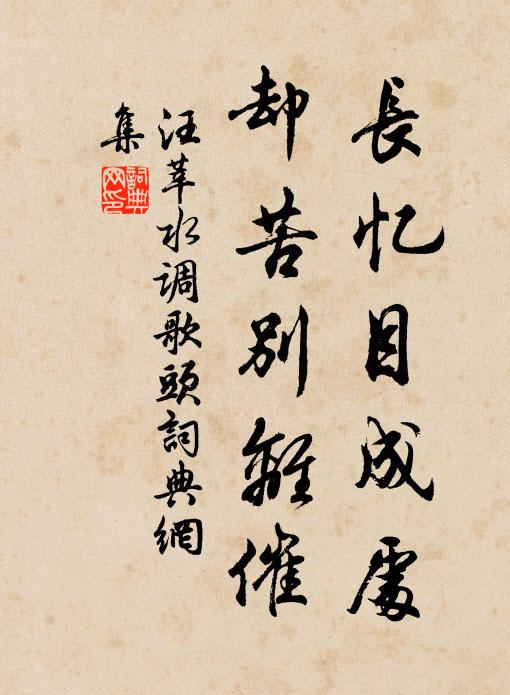 長忆目成處
却苦别離催
汪莘水调歌頭詞典網
集
詞典
网印